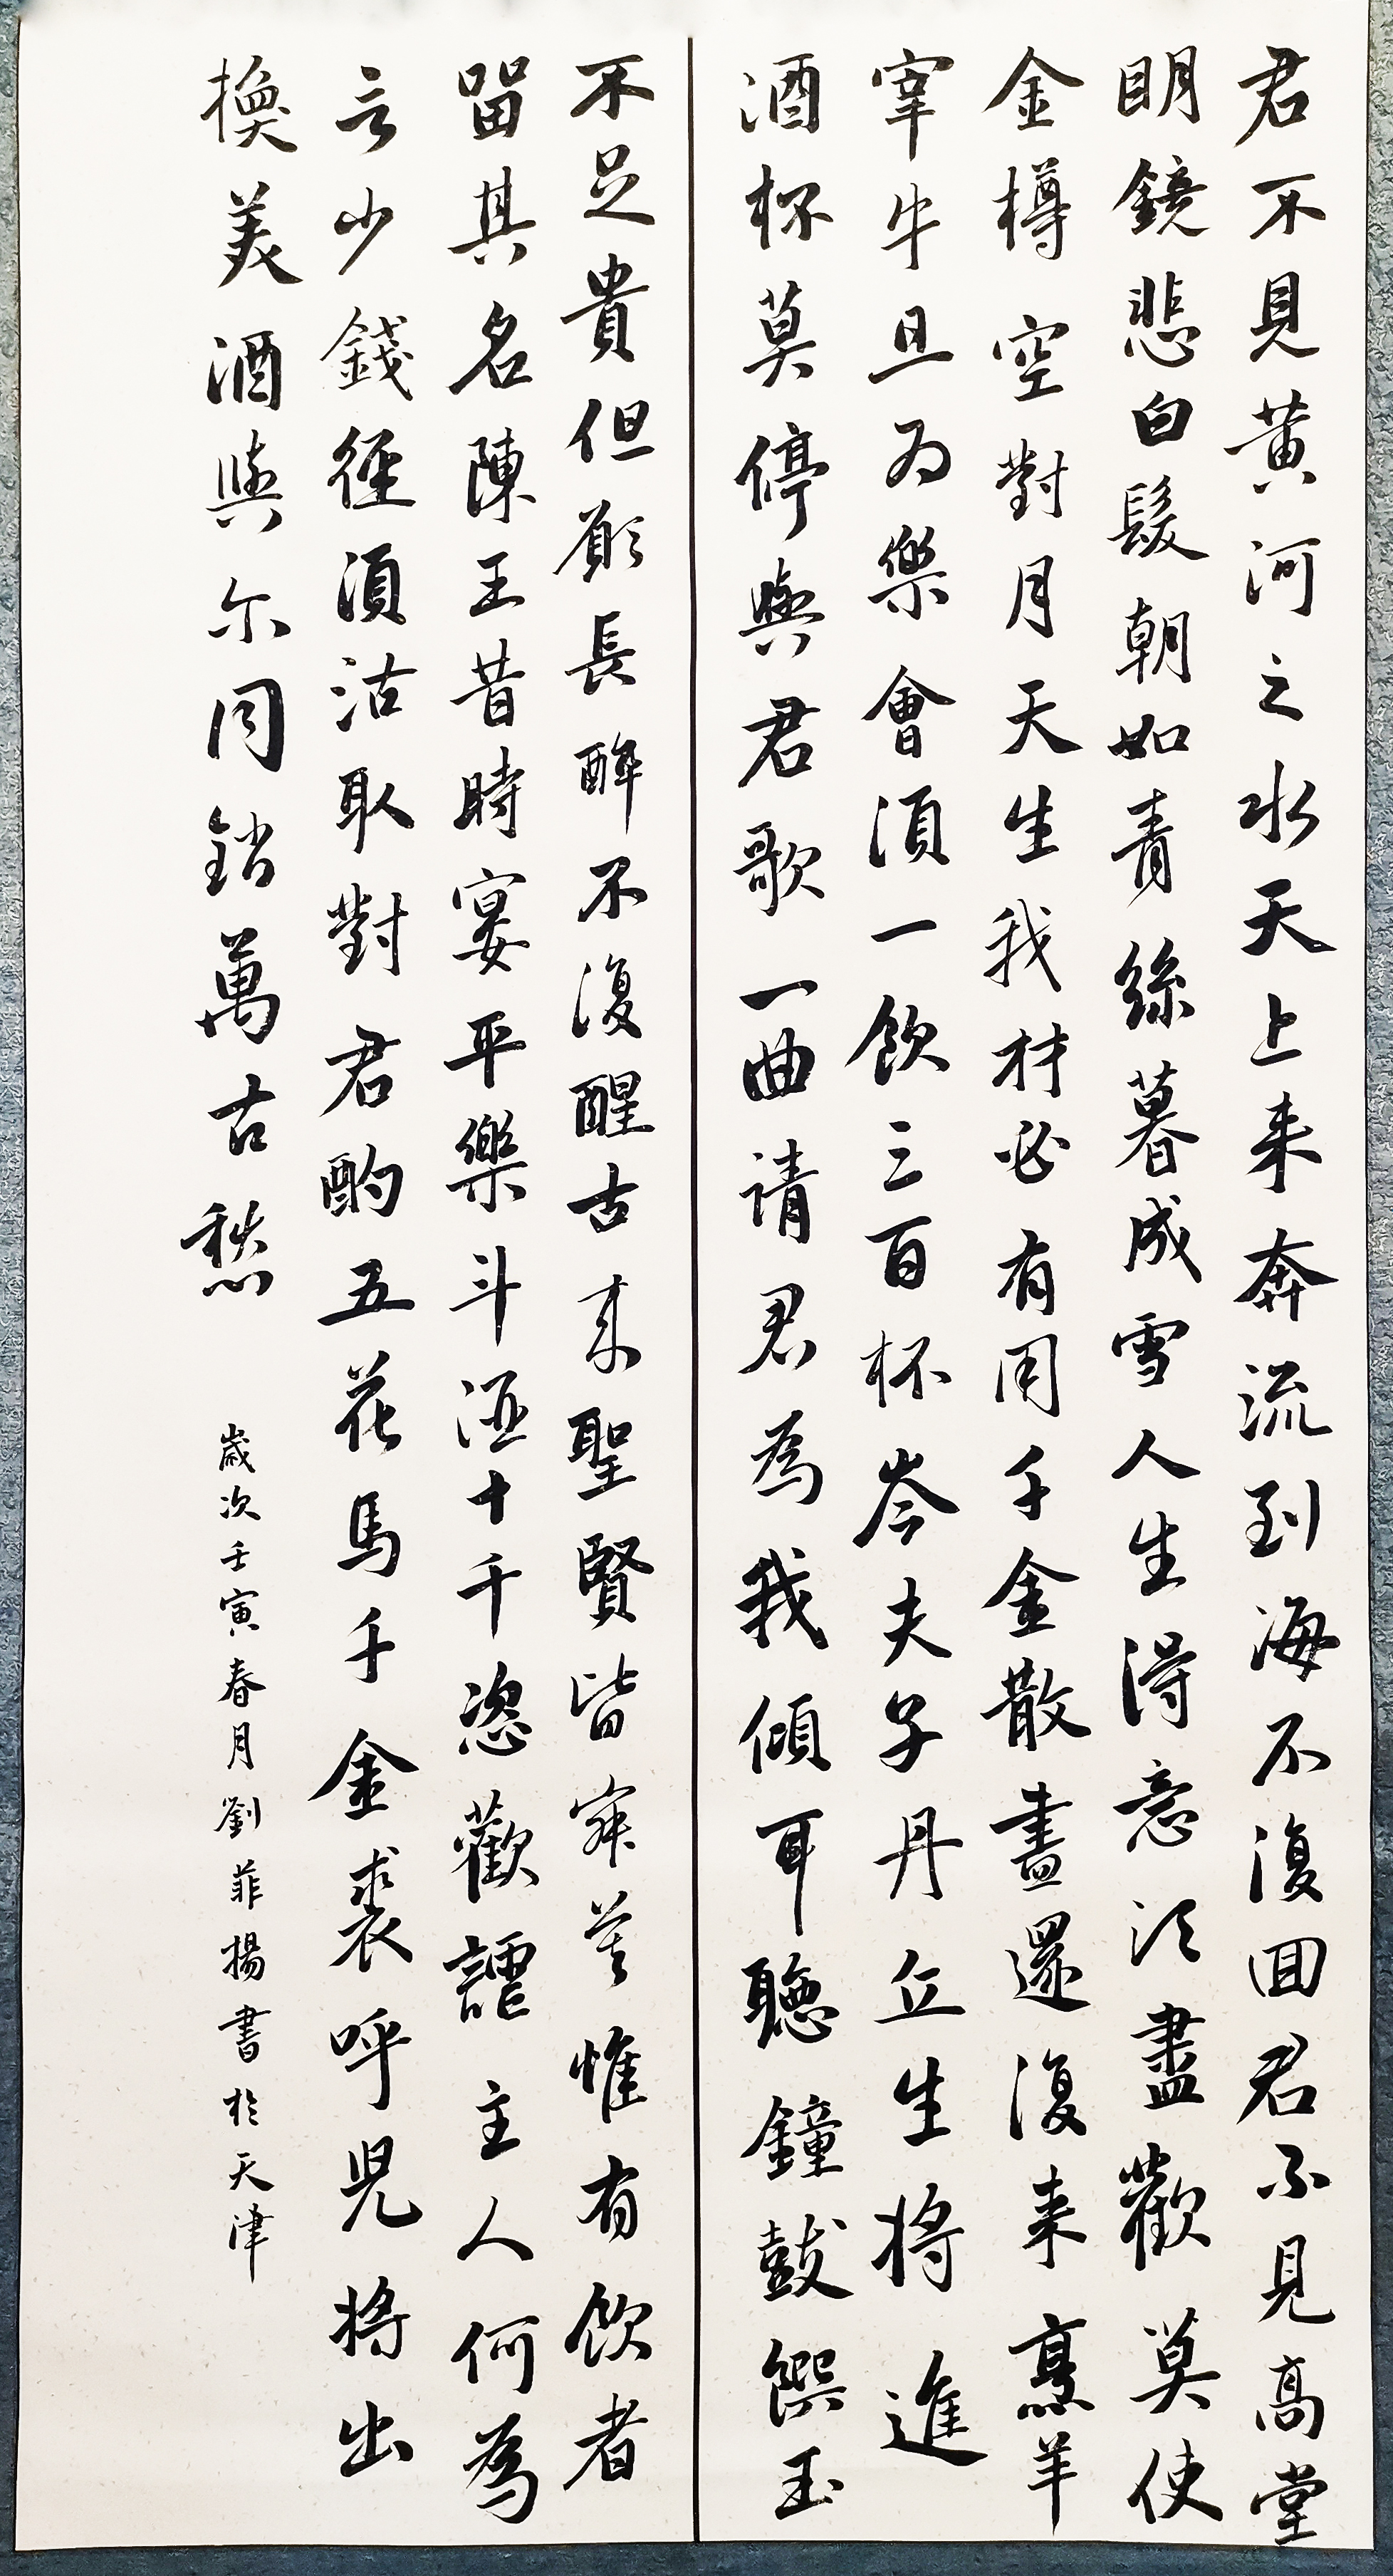 君不見黃河之水天上来奔流到海不復回君不見高堂
明鏡悲白髮朝如青絲暮成雪人生得意須盡歡莫使
金樽空對月天生我材必有用千金散盡還復来烹羊
宰牛且为樂會須一飲三百杯岑夫子丹丘生將進
酒杯莫停與君歌一曲請君為我傾耳聽鐘鼓饌玉
不足貴但願長醉不復醒古来聖賢皆寂莫惟有飲者
留其名陳王昔時宴平樂斗酒十千恣歡謔主人何為
言少錢徑須沽取對君酌五花馬千金裘呼兒將出
換美酒與尔同銷萬古愁
歲次壬寅春月劉菲揚書於天津